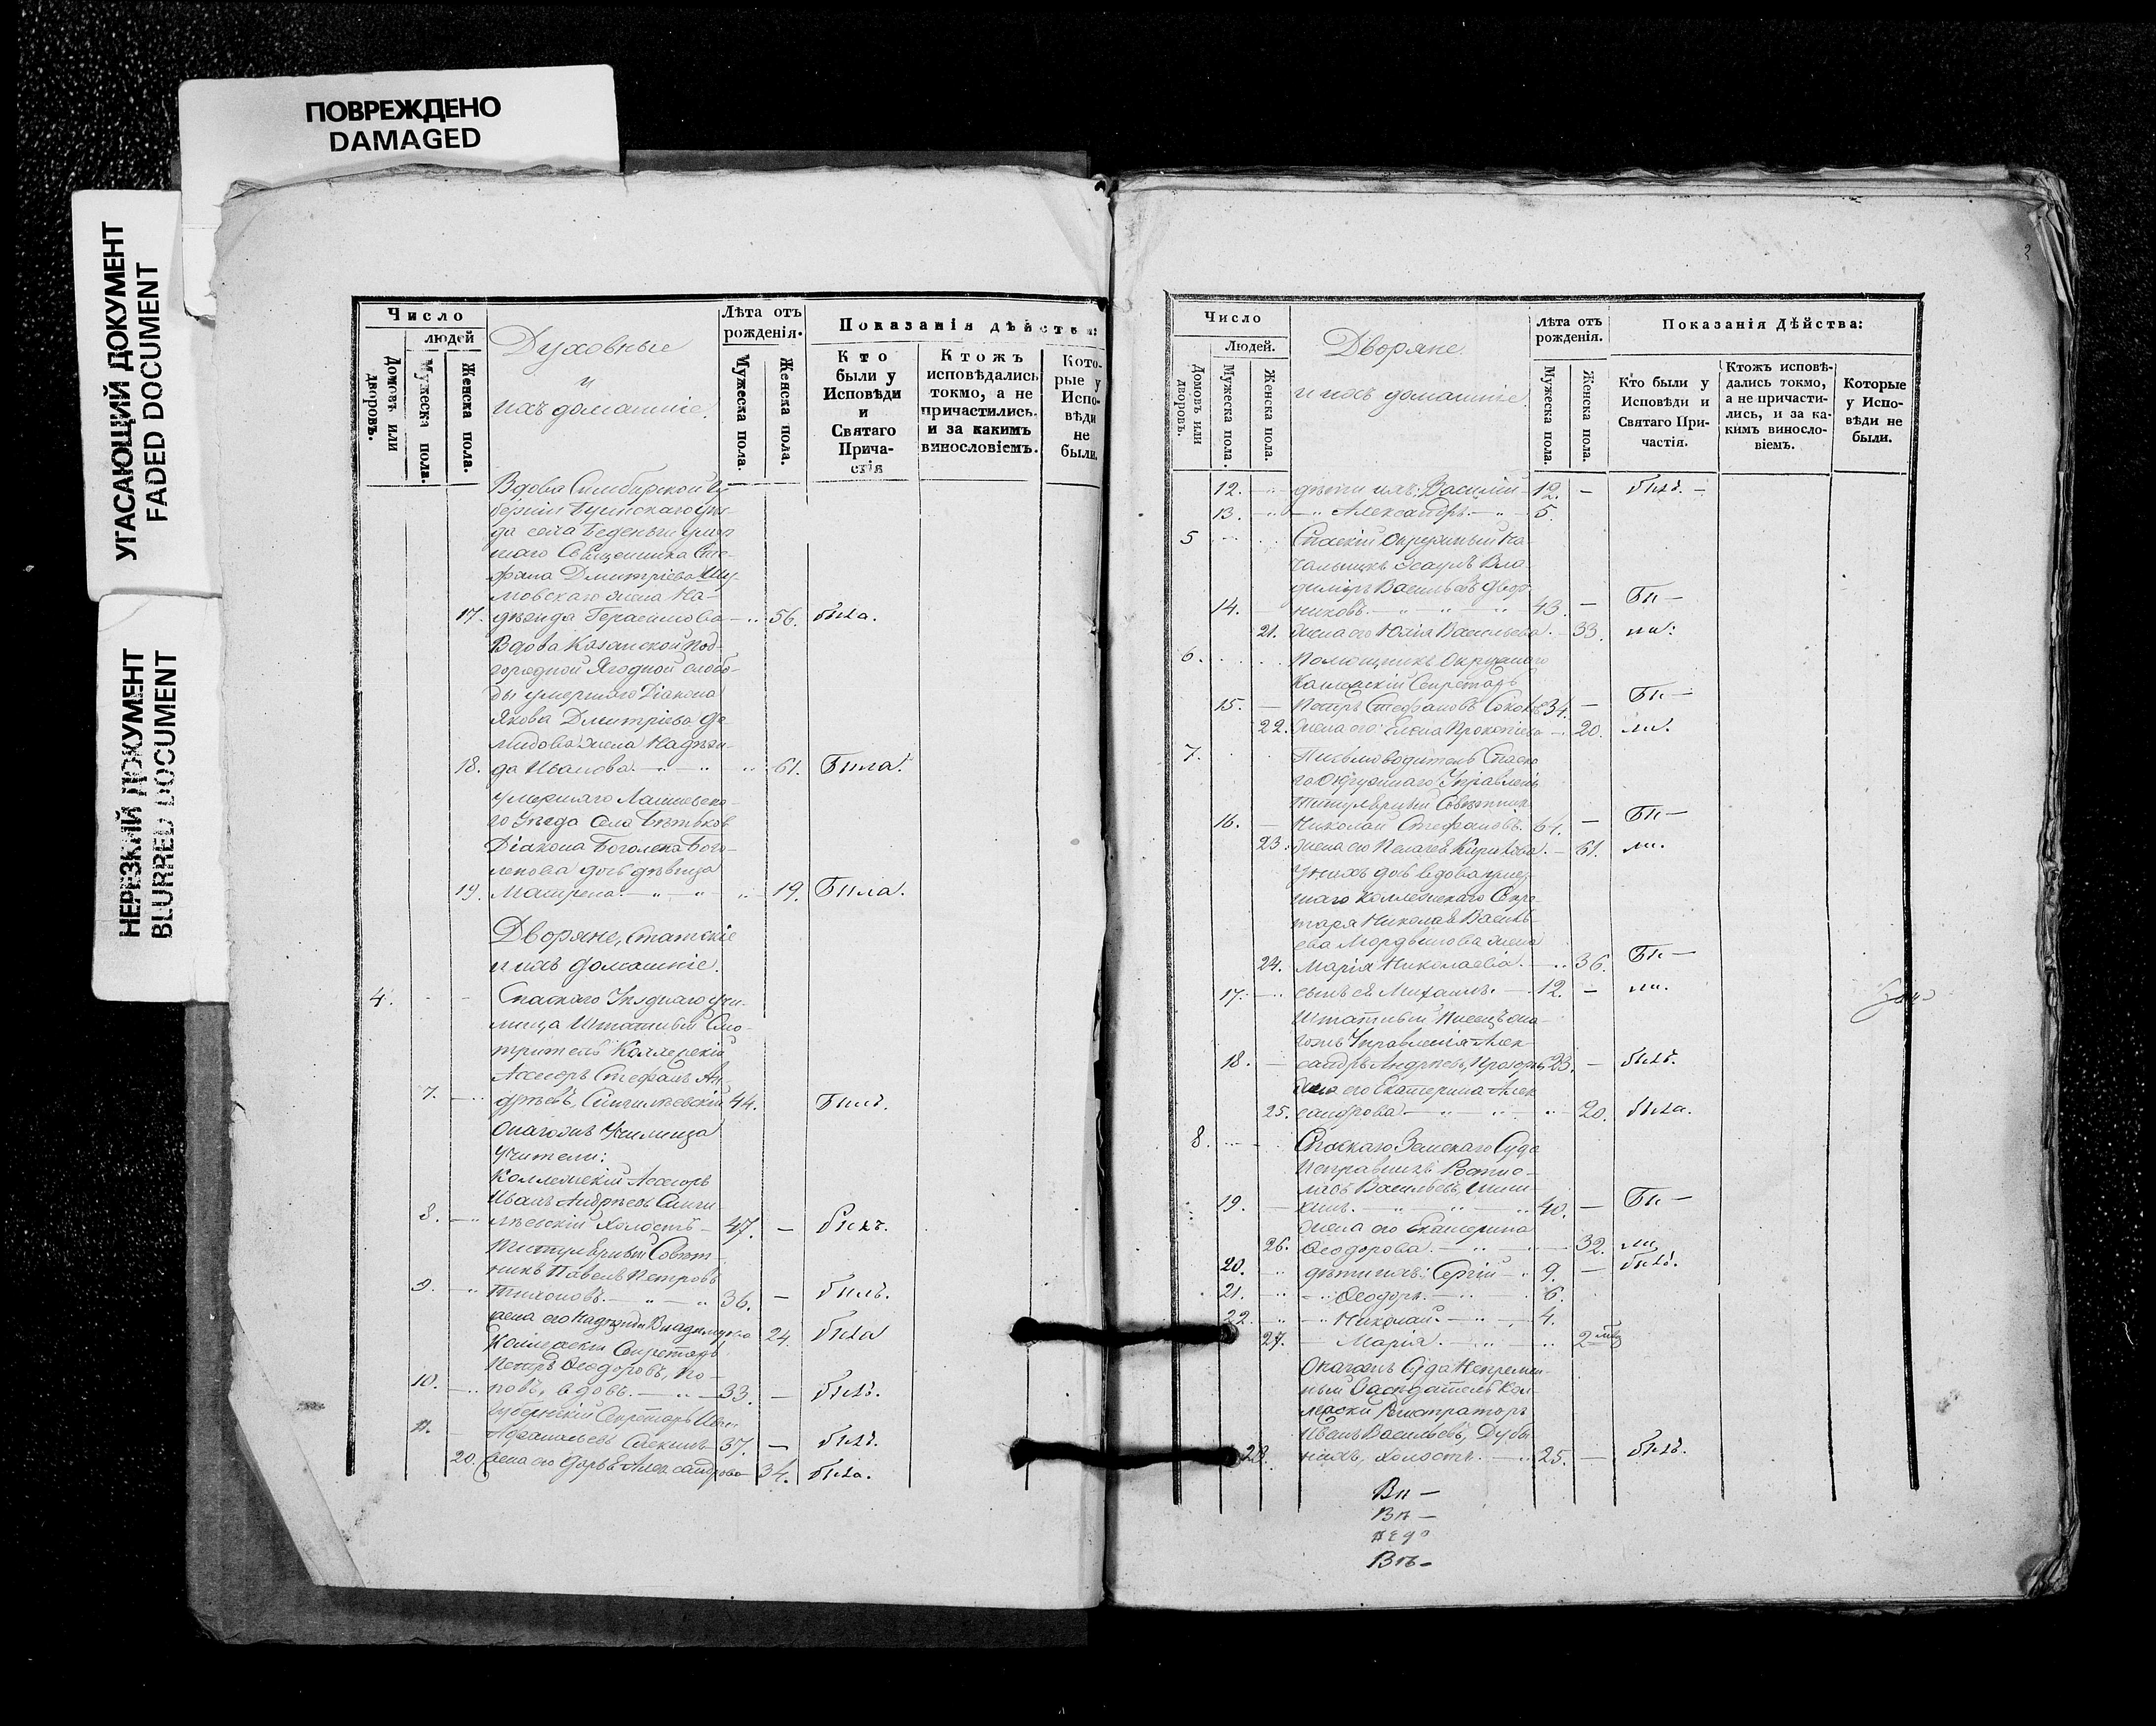 ПОВРЕЖДЕНО
DAMAGED
УГАСАЮЩИЙ ДОКУМЕНТ
FADED DOCUMENT
НЕРЕЗКИЙ ДОКУМЕНТ
BLURRED DOCUMENT
Число
людей
Домовъ или дворовъ.
Мужеска пола.
Женска пола.
Духовные
и
ихъ домашніе.
Лѣта отъ рожденія.
Мужеска пола.
Женска пола.
Показанія дѣйства:
Кто были у Исповѣди и Святаго Прича-стія
Ктожъ исповѣдались токмо, а не причастились. и за какимъ винословіемъ.
Кото-рые у Испо-вѣди не были.
Вдова Симбирской Гу
берніи Буинскаго уѣз
да села Беденьги умер
шаго Священника Сте-
фана Дмитріева Шу-
мовскаго жена На-
17. дѣжда Герасимова 56. была.
Вдова Казанской под-
городной Ягодной слобо-
ды умершаго Діакона
Якова Дмитріева Де
мидова жена Надѣж-
18. да Иванова. 61. Была.
Умершаго Лаишевска-
го Уѣзда села
Діакона Боголепа Бого-
лепова дочь дѣвица
19. Матрена 19. Была.
Дворяне, Статскіе
и ихъ домашніе.
4. Спаскаго Уѣзднаго Учи-
лища Штатный Смо-
тритель Коллежскій
Ассесоръ Стефанъ Ан-
7. дрѣевъ, Сингилѣевскій 44. Былъ.
Онагожъ Училища
Учители:
Коллежскій Ассесоръ
Иванъ Андрѣевъ Синги
8. лѣевскій холостъ 47. – былъ.
Титулярный Совѣт-
никъ Павелъ Петровъ
9. Тихоновъ. 36. – былъ.
жена его Надежда Владимірова 24. была
Коллежскій Секретарь
Петръ Ѳеодоровъ, По-
10. повъ, вдовъ. 33. – былъ.
Губернскій Секретарь Иванъ
11. 37. – былъ.
20. жена его Дарья Александрова 34. была.
3
Число
Людей.
Домовъ или дворовъ.
Мужеска пола.
Женска пола.
Дворяне.
и ихъ домашніе.
Лѣта отъ рожденія.
Мужеска пола.
Женска пола.
Показанія Дѣйства:
Кто были у Исповѣди и Святаго При-частія.
Ктожъ исповѣ-дались токмо, а не причасти-лись, и за ка-кимъ виносло-віемъ.
Которые у Испо-вѣди не были.
12. дѣти ихъ: Василій 12. – былъ. –
13. Александръ 5.
5 Спаскій Окружный На
чальникъ Эсаулъ Вла
диміръ Васильевъ Двор
14. никовъ. 43. – Бы –
21. жена его Юлія Васильева. 33. ли:
6. Помощникъ Окружнаго
Коллежскій Секретарь
15. – Петръ Стефановъ 34. – Бы –
22. жена его: Елена Прокопіева 20. ли.
7. Письмоводитель Спаска
го Окружнаго Управленія
Титулярный Совѣтникъ
16. – Николай Стефановъ. 61. – Бы –
23. жена его Пелагея Кирилова. – 61. ли.
У нихъ дочь вдова умер
шаго Коллежскаго Секре-
таря Николая Василь-
ева Мордвинова жена
24. Марія Николаевна. 36. Бы –
17. сынъ ея Михаилъ. 12. – ли.
Штатный Писецъ она-
гожъ Управленія Алек-
18. – сандръ Андрѣевъ, 23. – былъ.
жена его Екатерина Алек
25. сандрова 20. была.
8. Спаскаго Земскаго Суда
Исправникъ Ростис-
лавъ Васильевъ, Шиш-
19. кинъ 40. – Бы –
жена его Екатерина
26. Ѳеодорова. 32. ли
20. дѣти ихъ: Сергій 9. – былъ.
21. Ѳеодоръ. 6.
22. Николай. 4.
27. Марія. 2
Онагожъ Суда Непремен-
ный Засѣдатель Кол-
лежскій Регистраторъ
Иванъ Васильевъ,
28. холостъ. 25. – былъ.